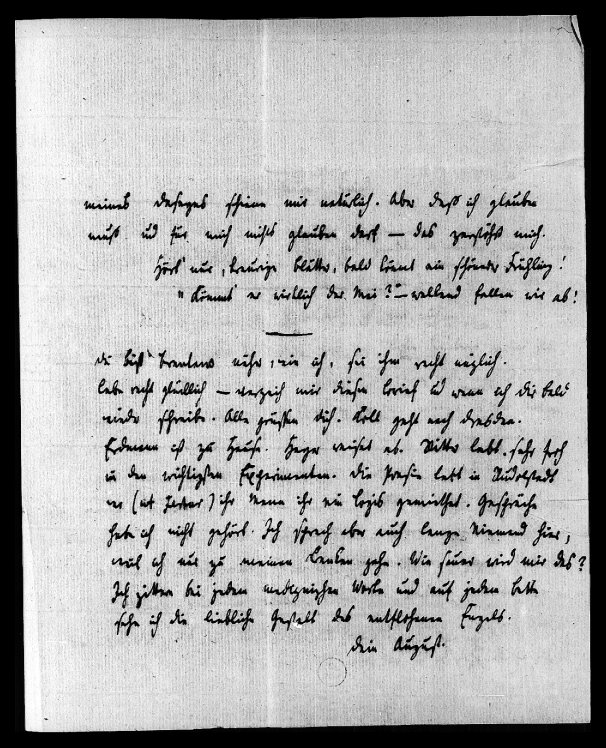 meines diesseges scheine mir natürlich. Aber daß ich glauben
muß ud für mich nichts glauben darf — das zerstöhrt mich.
Hört nur, traurige Blätter, bald kömmt ein schöner Frühling!
"Kömmt er wirklich der Mai?" — wellend fallen wir ab!
du bist Brentano näher, wie ich, sei ihm recht nüzlich.
lebe recht glücklich — verzeih mir diesen Brief ud wenn ich dir bald
wieder schreibe. Alle grüssen dich. Koll geht nach Dresden.
Erdmann ist zu Hause. Heger reiset ab. Ritter lebt sehr froh
in den wichtigsten Experimenten. die Poesie lebt in Rudolstadt
wo ihr Mann ihr ein Logis gemiethet. Gespräche
habe ich nicht gehört. Ich sprach aber auch lange Niemand hier,
weil ich nur zu meinen Kranken gehe. Wie sauer wird mir das?
Ich zittere bei jedem medizinischen Worte und auf jedem Bette
sehe ich die liebliche Gestalt des entflohenen Engels.
dein August.